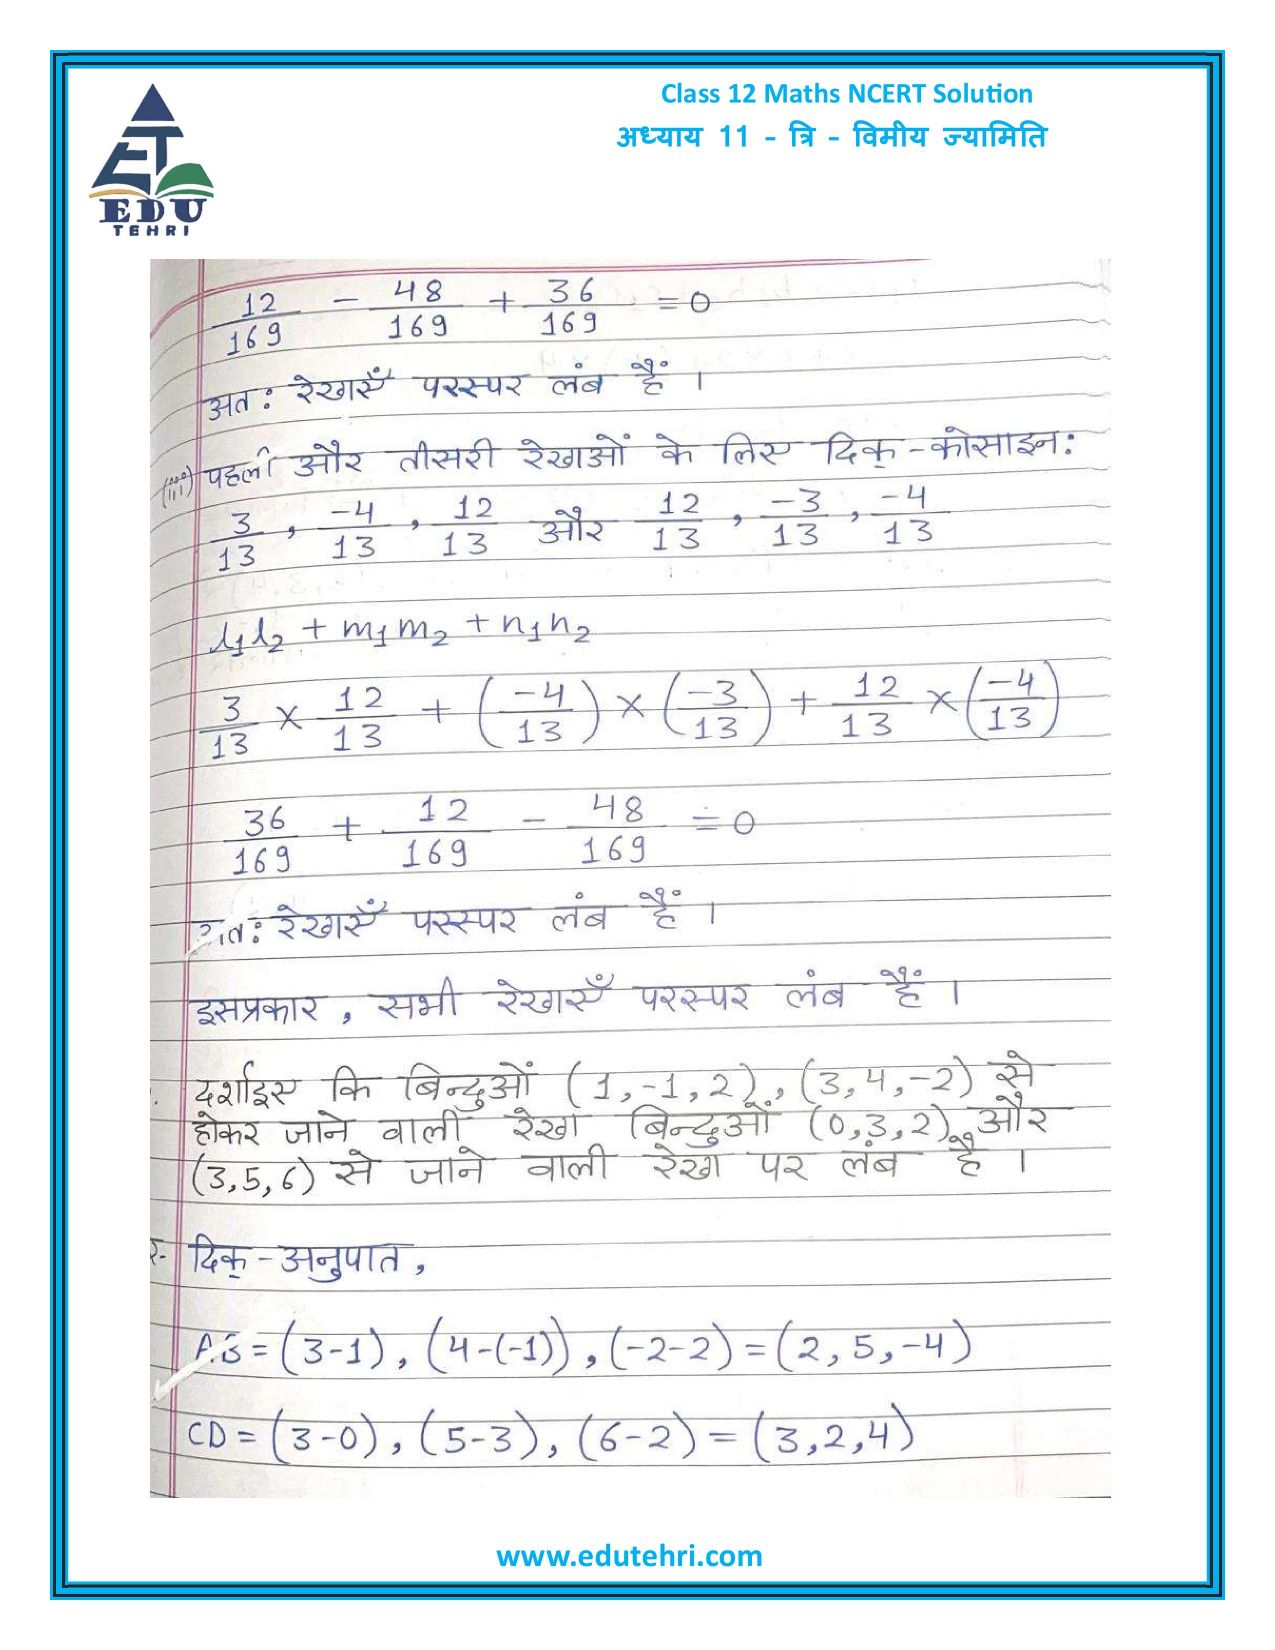 Class 12 Maths NCERT Solution
अध्याय 11 - त्रि - विमीय ज्यामिति
EDU
TEHRI
12/169 - 48/169 + 36/169 = 0
अत: रेखाएँ परस्पर लंब हैं ।
(iii) पहली और तीसरी रेखाओं के लिए दिक्-कोसाइन:
3/13, -4/13, 12/13 और 12/13, -3/13, -4/13
l₁l₂ + m₁m₂ + n₁n₂
3/13 × 12/13 + (-4/13) × (-3/13) + 12/13 × (-4/13)
36/169 + 12/169 - 48/169 = 0
अत: रेखाएँ परस्पर लंब हैं ।
इसप्रकार, सभी रेखाएँ परस्पर लंब हैं ।
दर्शाइए कि बिन्दुओं (1,-1,2), (3,4,-2) से
होकर जाने वाली रेखा बिन्दुओं (0,3,2) और
(3,5,6) से जाने वाली रेखा पर लंब है ।
दिक्-अनुपात,
AB = (3-1), (4-(-1)), (-2-2) = (2, 5, -4)
CD = (3-0), (5-3), (6-2) = (3,2,4)
www.edutehri.com